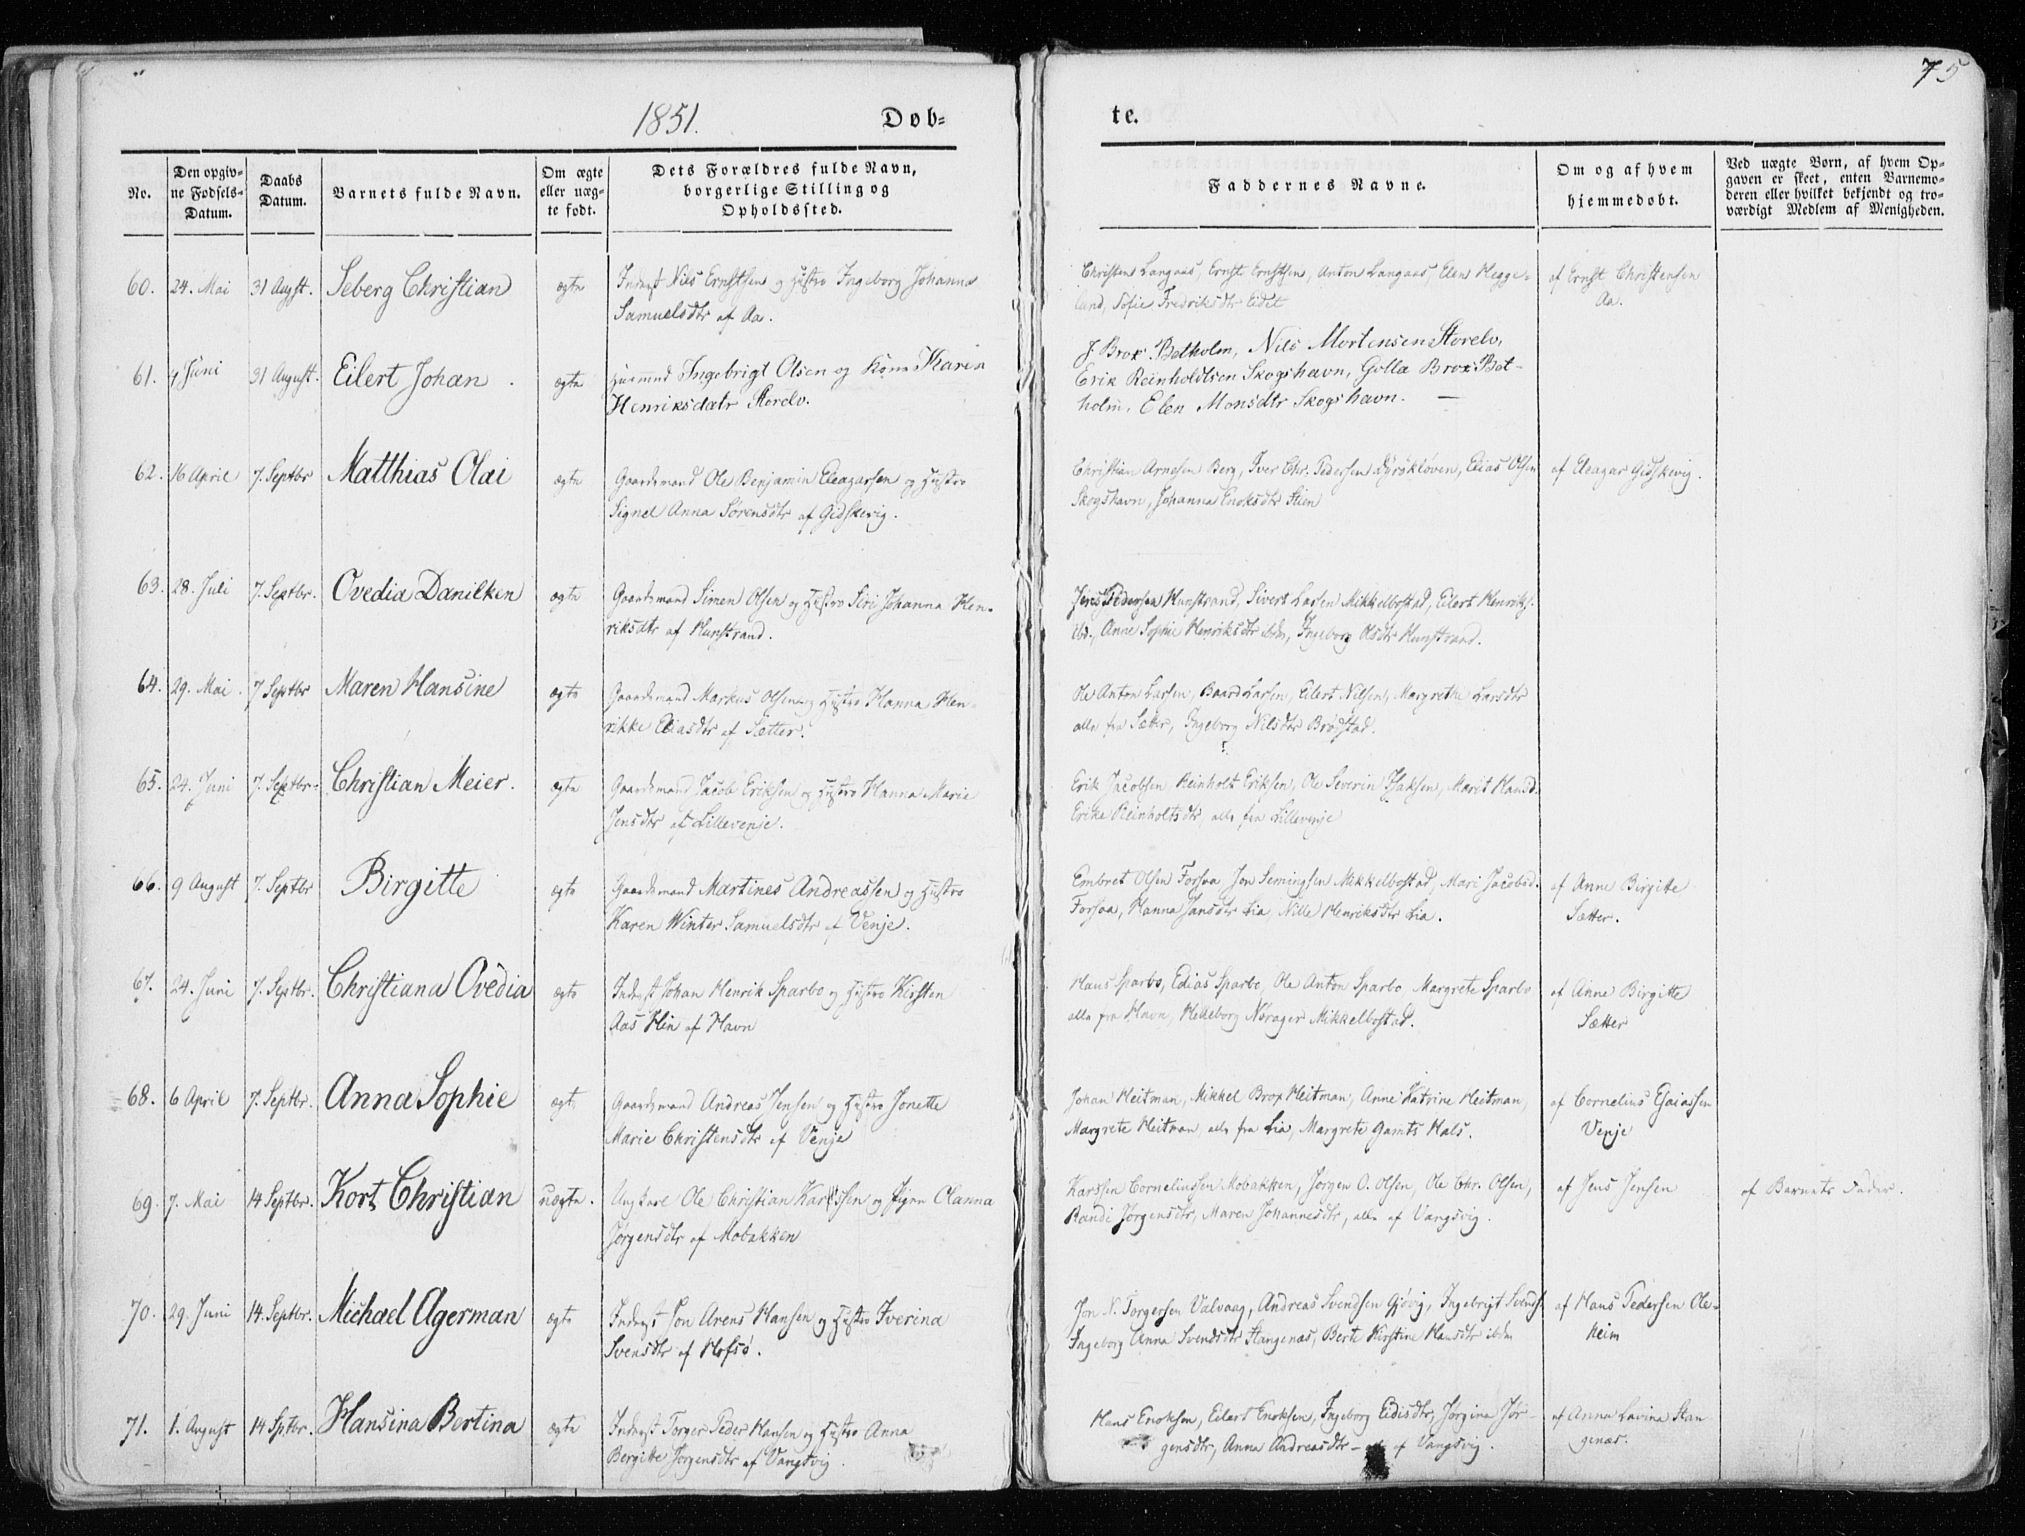 75
1851.
Døb=
te.
No.
Den opgiv-
ne Fødsels-
Datum.
Daabs
Datum.
Barnets fulde Navn.
Om ægte
eller uæg-
te født.
Dets Forældres fulde Navn,
borgerlige Stilling og
Opholdssted.
Faddernes Navne.
Om og af hvem
hjemmedøbt.
Ved uægte Børn, af hvem Op-
gaven er skeet, enten Barnemo-
deren eller hvilket bekjendt og tro-
værdigt Medlem af Menigheden.
60. 24. Mai 31 Augst. Seberg Christian ægte Inderst Nils Ernstsen og Hustro Ingeborg Johanna
Samuelsdtr af Aa.
Christen Langaas, Ernst Ernstsen, Anton Langaas, Elen Hegge-
land, Sofie Fredriksdtr Eidet
af Ernst Christensen
Aa.
61. 4 Juni 31 August. Eilert Johan. ægte Huusmnd Ingebrigt Olsen og Kone Karen
Henriksdatr Storelv.
J. Brox Betholm, Nils Mortensen Storelv,
Erik Reinholdtsen Skogshavn, Golla Brox Bet-
holm, Elen Monsdtr Skogshavn. —
62. 16 April 7. Septbr Matthias Olai ægte Gaardsmand Ole Benjamin Eleazarsen og Hustro
Signel Anna Sørensdtr af Gidskevig.
Christian Arnesen Berg, Iver Chr. Pedersen Dyrøkløven, Edias Olsen
Skogshavn, Johanna Enoksdtr Stien
af Eleazar Gidskevig.
63. 28. Juli 7. Septbr. Ovedia Danilken ægte Gaardsmand Simen Olsen og Hustro Siri Johanna Hen-
riksdtr af Kunstrand.
Pedersen Kunstrand, Sivert Larsen Mikkelbostad, Eilert Henriks.
ibd., Anne Sophie Henriksdtr ibdm, Ingeborg Olsdtr Kunstrand.
64. 29. Mai. 7 Septbr Maren Hansine ægte Gaardsmand Markus Olsen og Hustro Hanna Hen-
rikke Eliasdtr af Sætter.
Ole Anton Larsen, Baard Larsen, Eilert Nilsen, Margrethe Larsdtr
alle fra Sæter, Ingeborg Nilsdtr Brøstad.
65. 24. Juni 7. Septbr. Christian Meier. ægte Gaardsmand Jacob Eriksen og Hustro Hanna Marie
Jensdtr af Lillevenje.
Erik Jacobsen, Reinholt Eriksen, Ole Severin Isaksen, Marit Hansd.
Erike Reinholtsdtr, alle fra Lillevenje
66. 9 August 7. Septbr Birgitte ægte Gaardsmand Martines Andreassen og Hustro
Karen Winter Samuelsdtr af Venje.
Embret Olsen Forsaa Jon Semingsen Mikkelbostad, Mari Jacobsd.
Forsaa, Hanna Jansdtr Lia, Nille Henriksdtr Lia.
af Anne Birgitte
Sætter.
67. 24. Juni 7. Septbr. Christiana Ovedia ægte Inderst Johan Henrik Sparbo og Hustro Kirsten
Aas Hin af Havn
Hans Sparbo, Edias Sparbo, Ole Anton Sparbo, Margrete Sparbo
alle fra Havn, Helleborg Nørager Mikkelbostad.
af Anne Birgitte
Sætter
68. 6 April 7. Septbr. Anna Sophie ægte Gaardsmand Andreas Jensen og Hustro Jonette
Marie Christensdtr af Venje
Johan Heitman, Mikkel Brox Heitman, Anne Katrine Heitman,
Margrete Heitman, alle fra Lia, Margrete Gamts Hals.
af Cornelius Esaiassen
Venje
69. 7. Mai 14 Septbr. Kort Christian uægte. Ungkarl Ole Christian Karlssen og Pigen Olanna
Jørgensdtr af Mobakken
Karssen Corneliussen Mobakken, Jørgen O. Olsen, Ole Chr. Olsen,
Randi Jørgensdtr, Maren Johannesdtr, alle af Vangsvig.
af Jens Jensen
af Barnets Fader.
70. 29. Juni 14. Septbr. Michael Agerman ægte Inderst Jon Arens Hansen og Hustro Iverina
Svensdtr af Hofsø.
Jon N. Torgersen Valvaag, Andreas Svendsen Gjøvig, Ingebrigt Svends.
Ingeborg Anna Svendsdtr Stangenæs, Berte Kirstine Hansdtr ibdm
af Hans Pedersen Ole-
heim
71. 1. August 14 Sptbr. Hansina Bertina ægte Inderst Torger Peder Hansen og Hustro Anna
Bergitte Jørgensdtr af Vangsvig.
Hans Enoksen, Eilert Enoksen, Ingeborg Eidisdtr, Jørgina Jør-
gensdtr, Anna Andreasdtr - af Vangsvig.
af Anna Lavina Stan
genæs.